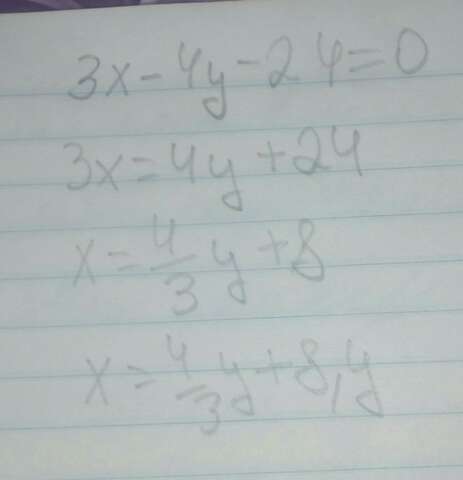 3x-4y-24=0
3x=4y+24
x=4/3y+8
x=4/3y+8,y